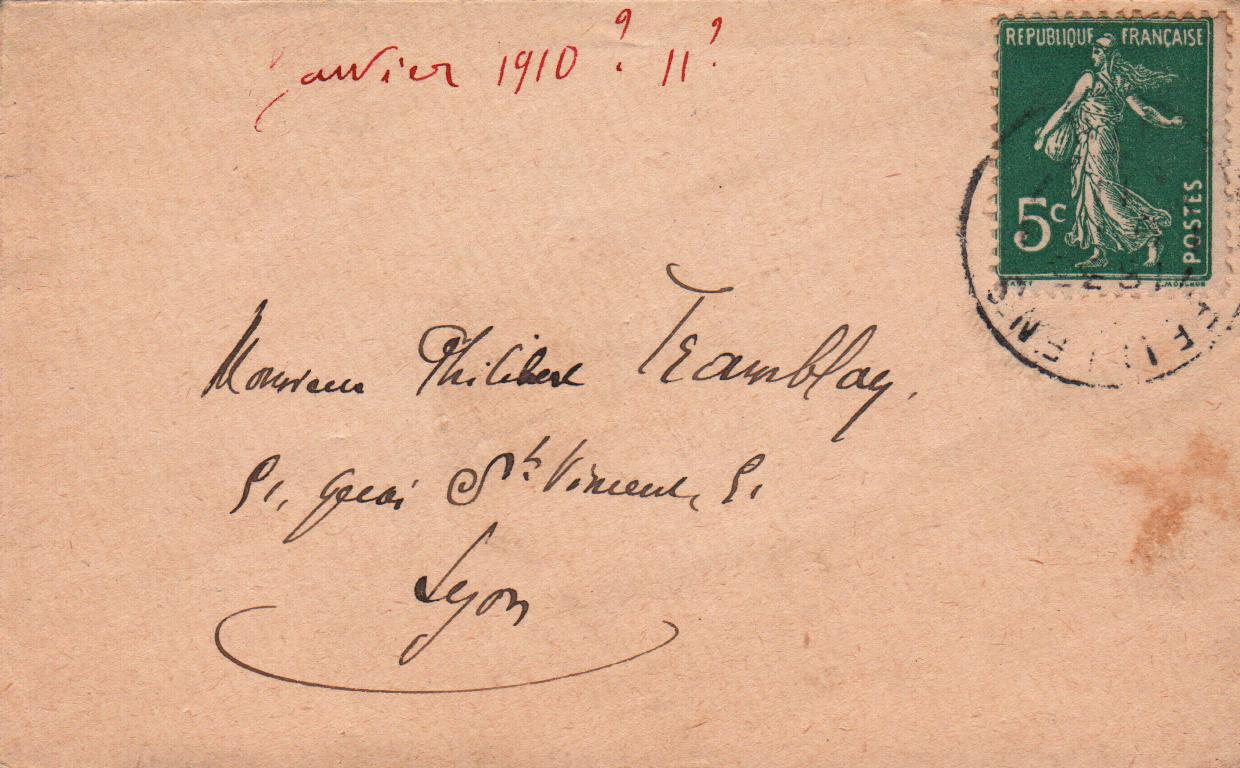 Janvier 1910? 11?
REPUBLIQUE FRANÇAISE
5c
POSTES
Monsieur Philibert Tramblay,
51, quai St Vincent, 51
Lyon